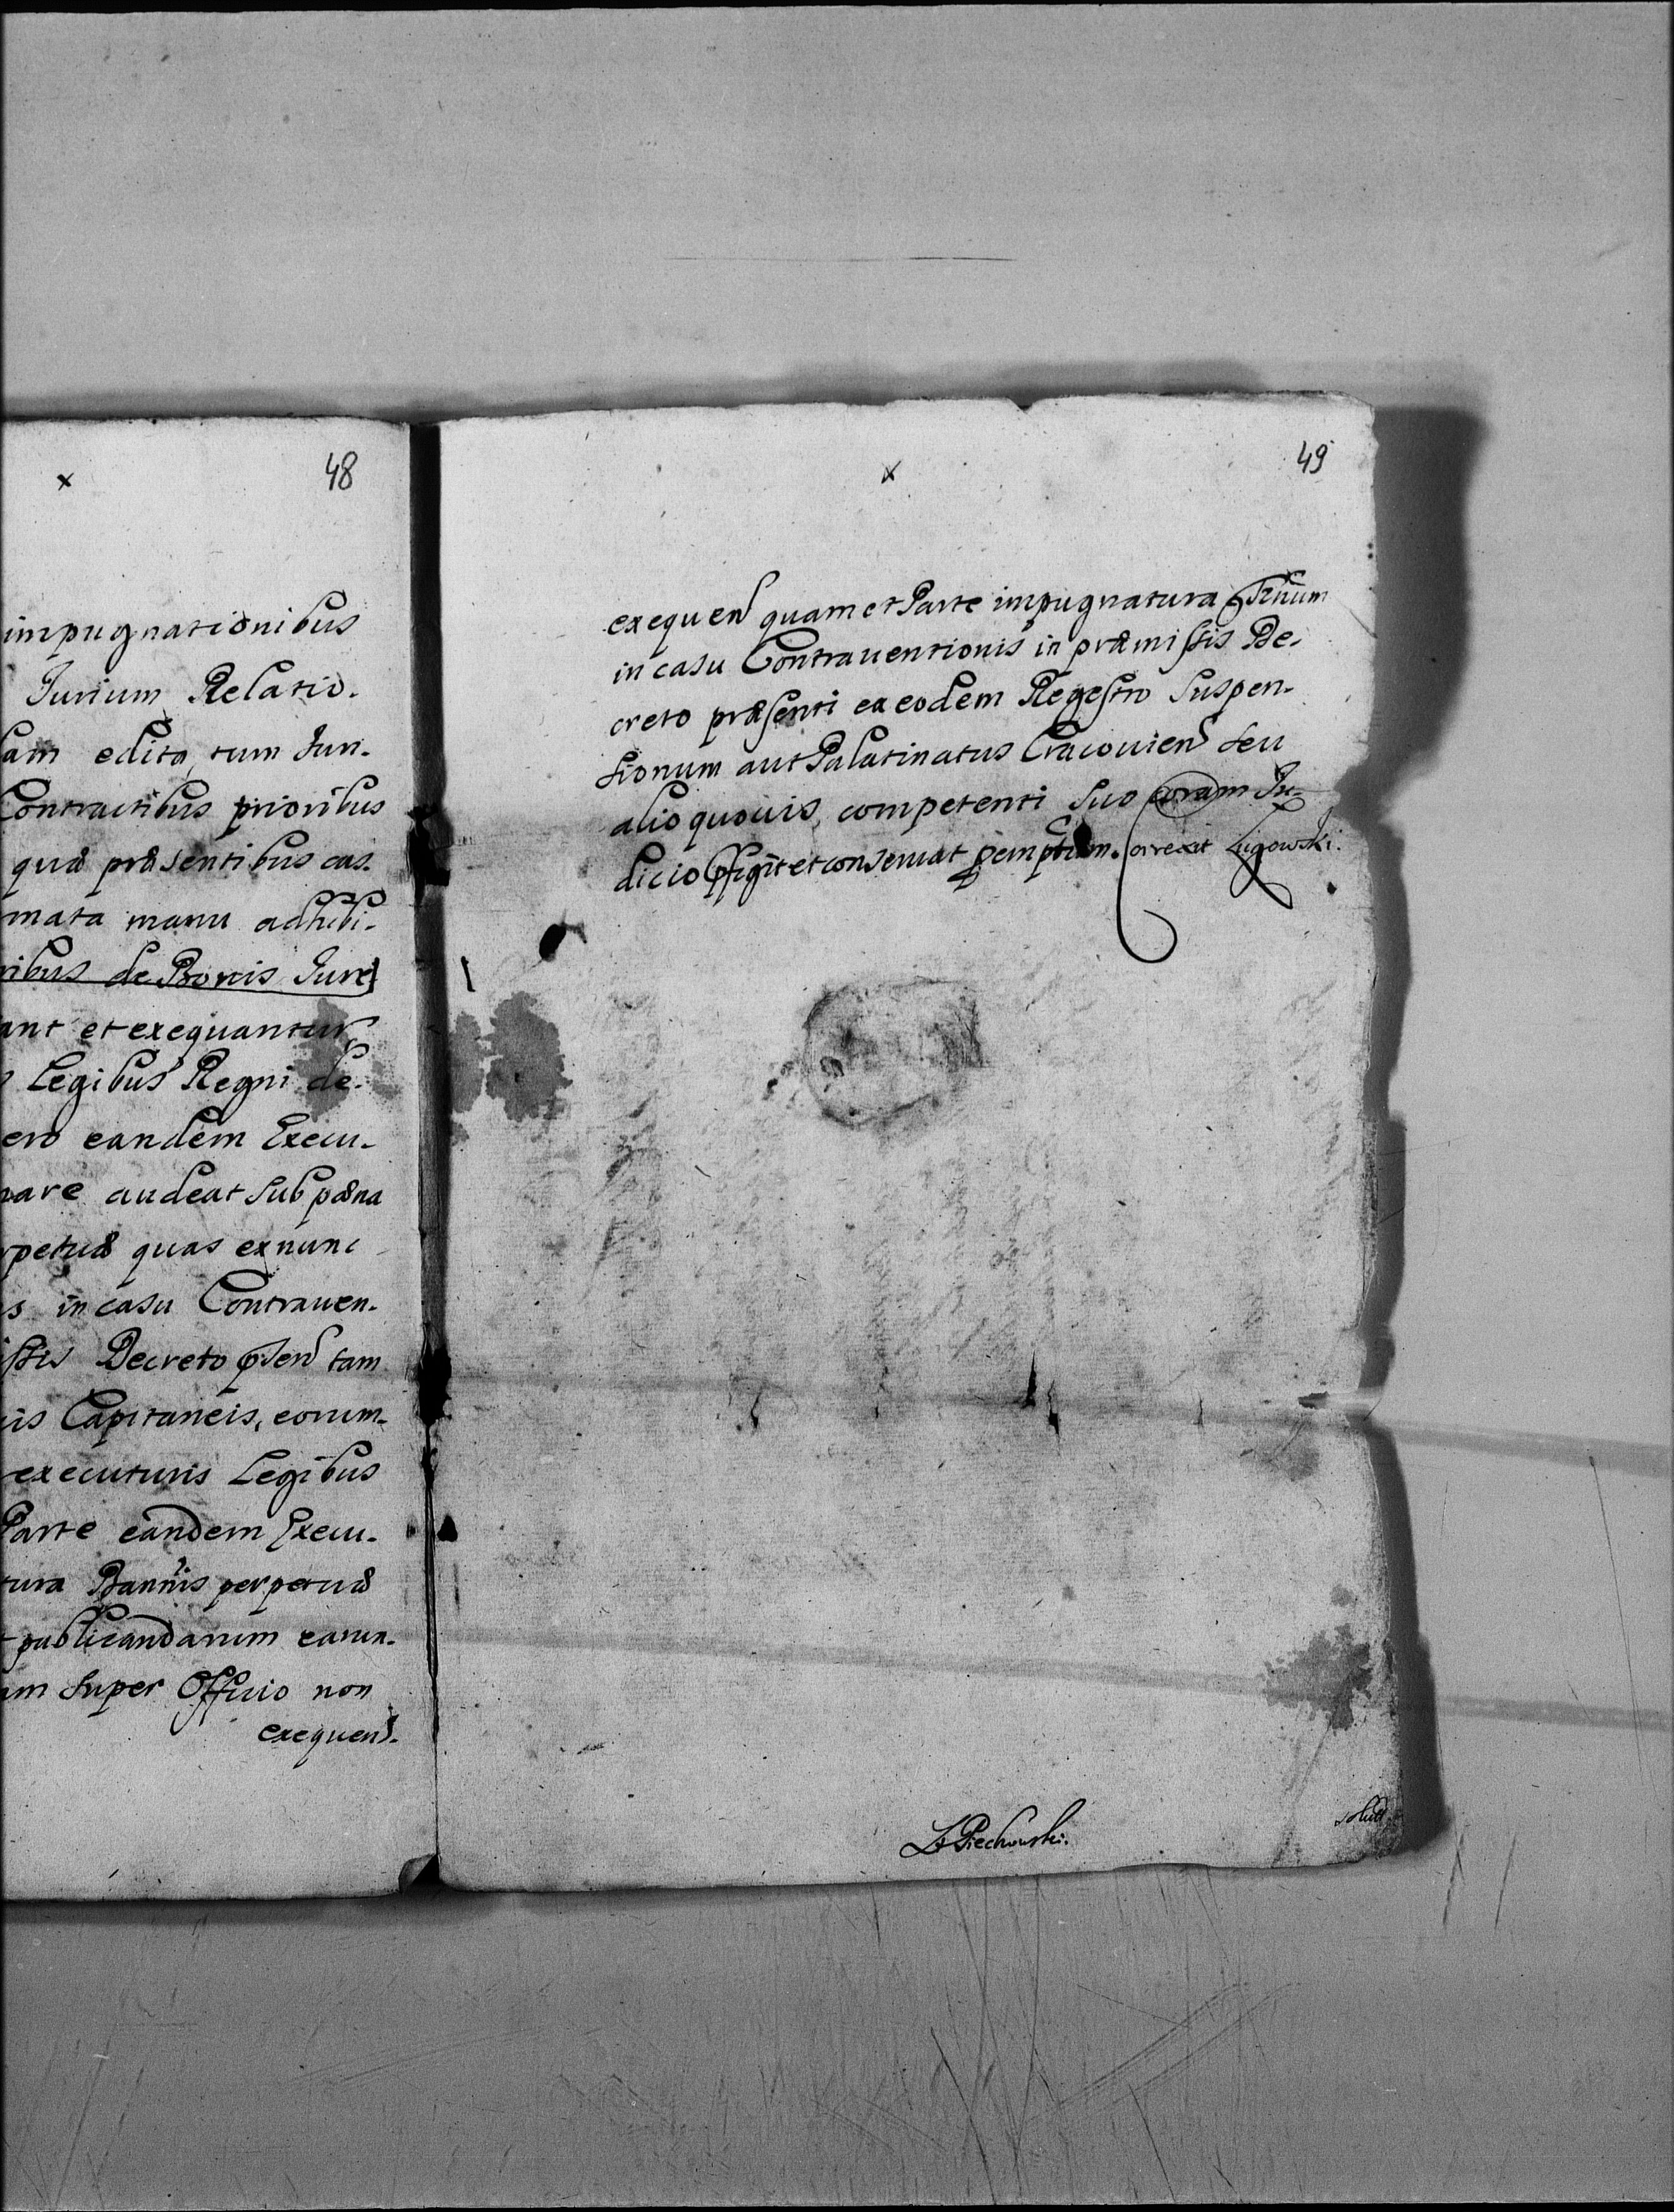 48
impugnationibus
Jurium Relatio-
edita, tum Juri-
Contractibus prioribus
quæ præsentibus cas-
mata manu adhibi-
ribus de Bonis Jure
ant et exequantur
Legibus Regni de-
ero eandem Execu-
nare audeat sub pæna
rpetuæ quas exnunc
s in casu Contraven-
issis Decreto pñsen tam
is Capitaneis, eorum-
executuris Legibus
Parte eandem Execu-
tura Bannis perpetuæ
publicandarum earun-
um super Officio non
exequen.
49
exequen quam et Parte impugnatura Trnum
in casu Contrauentionis in præmissis De-
creto præsenti ex eodem Regestro Suspen-
sionum aut Palatinatus Cracovien seu
alio quovis, competenti suo coram Ju-
dicio pfigit et conservat pemptrium. Correxit Ligowski.
Piechowski.